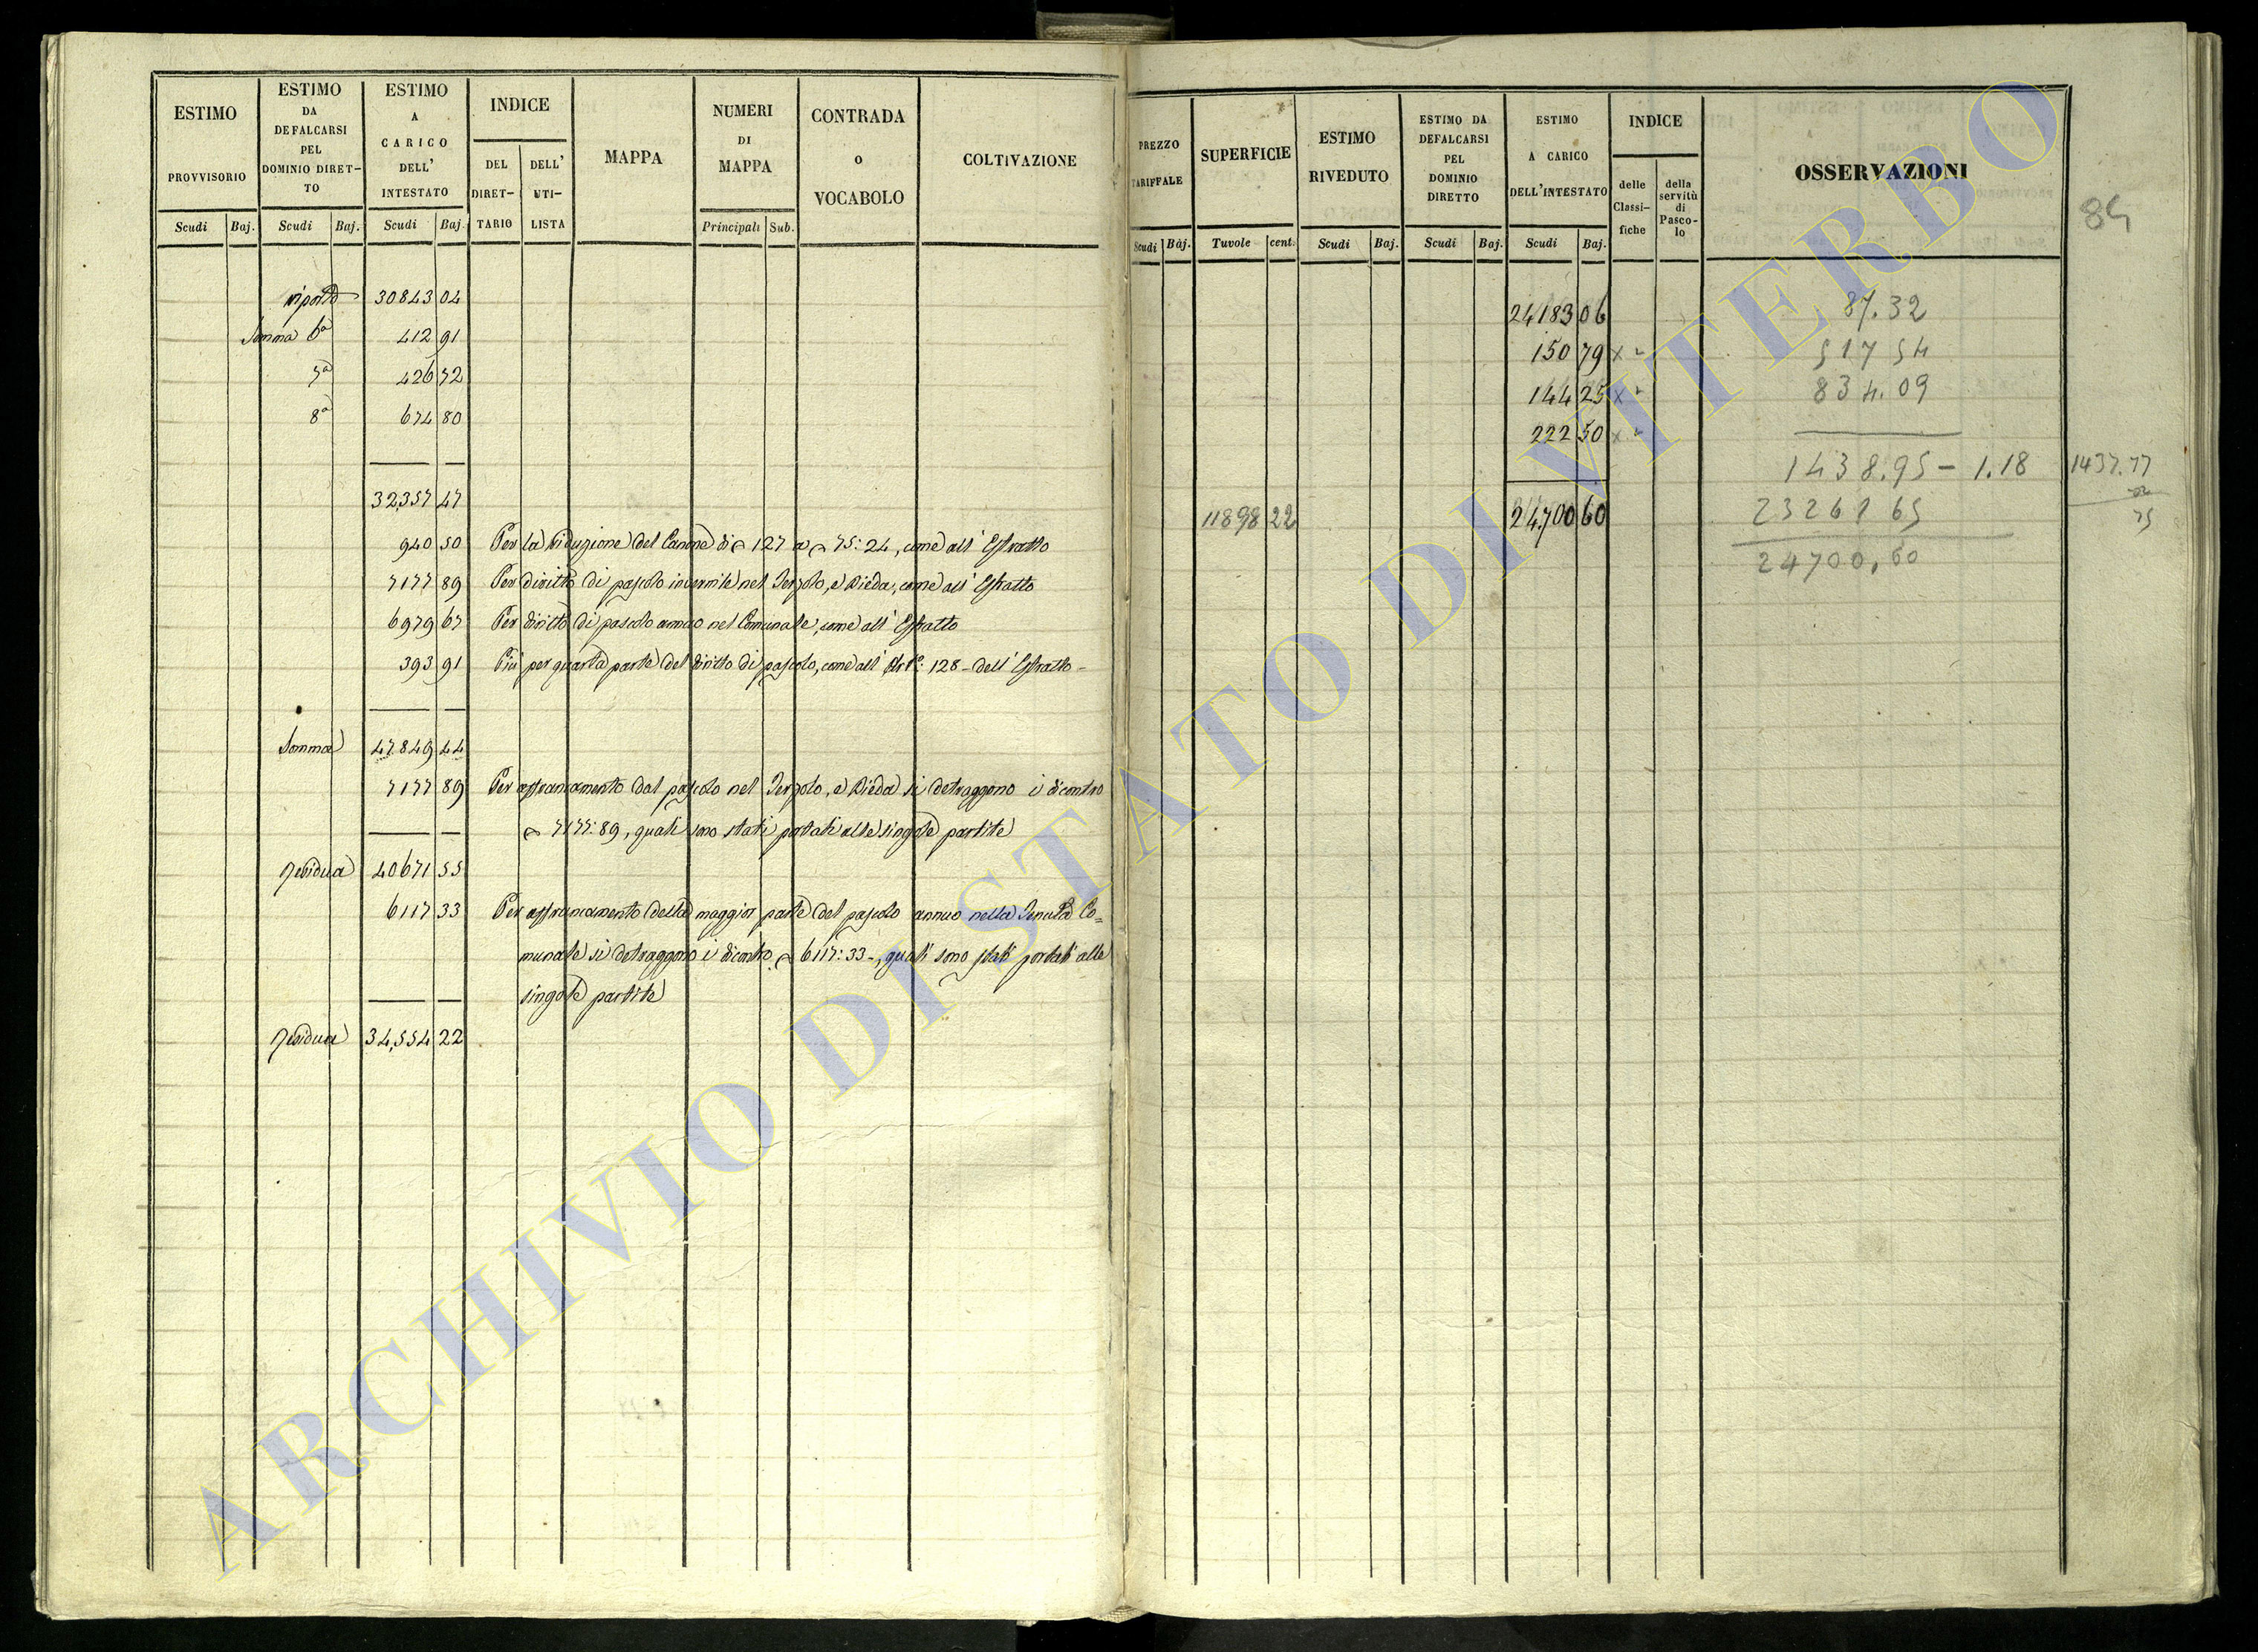 ESTIMO
PROVVISORIO
Scudi Baj.
ESTIMO
DA
DEFALCARSI
PEL
DOMINIO DIRET-
TO
Scudi Baj.
ESTIMO
A
CARICO
DELL'
INTESTATO
Scudi Baj.
INDICE
DEL
DIRET-
TARIO
DELL'
UTI-
LISTA
MAPPA
NUMERI
DI
MAPPA
Principali Sub.
CONTRADA
o
VOCABOLO
COLTIVAZIONE
riporto 30843 04
Somma 6a 412 91
7a 426 72
8a 674 80
32,357 47
940 50 Per la riduzione del Canone di 127 a 75:24, come all' Estratto
7177 89 Per diritto di pascolo invernile nel Terzolo, e Bieda, come all' Estratto
6979 67 Per diritto di pascolo annuo nel Comunale, come all' Estratto
393 91 Più per quarta parte del diritto di pascolo, come all' 128 - dell' Estratto -
Somma 47,849 44
7177 89 Per affrancamento dal pascolo nel Terzolo, e Bieda si detraggono i dicontro
7177:89, quali sono stati portati alle singole partite
residua 40671 55
6117 33 Per affrancamento della maggior parte del pascolo annuo nella Tenuta Co=
munale si detraggono i dicontro 6117:33 -, quali sono stati portati alle
singole partite
residua 34,554 22
PREZZO
TARIFFALE
Scudi Baj.
SUPERFICIE
Tavole cent.
ESTIMO
RIVEDUTO
Scudi Baj.
ESTIMO DA
DEFALCARSI
PEL
DOMINIO
DIRETTO
Scudi Baj.
ESTIMO
A CARICO
DELL'INTESTATO
Scudi Baj.
INDICE
delle
Classi-
fiche
della
servitù
di
Pasco-
lo
OSSERVAZIONI
84
24183 06 87.32
150 79 x 517 54
144 25 x 834.09
222 50 x
1438.95 - 1.18 1437.77
11898 22 24,700 60 23261 65
75
24700,60
ARCHIVIO DI STATO DI VITERBO